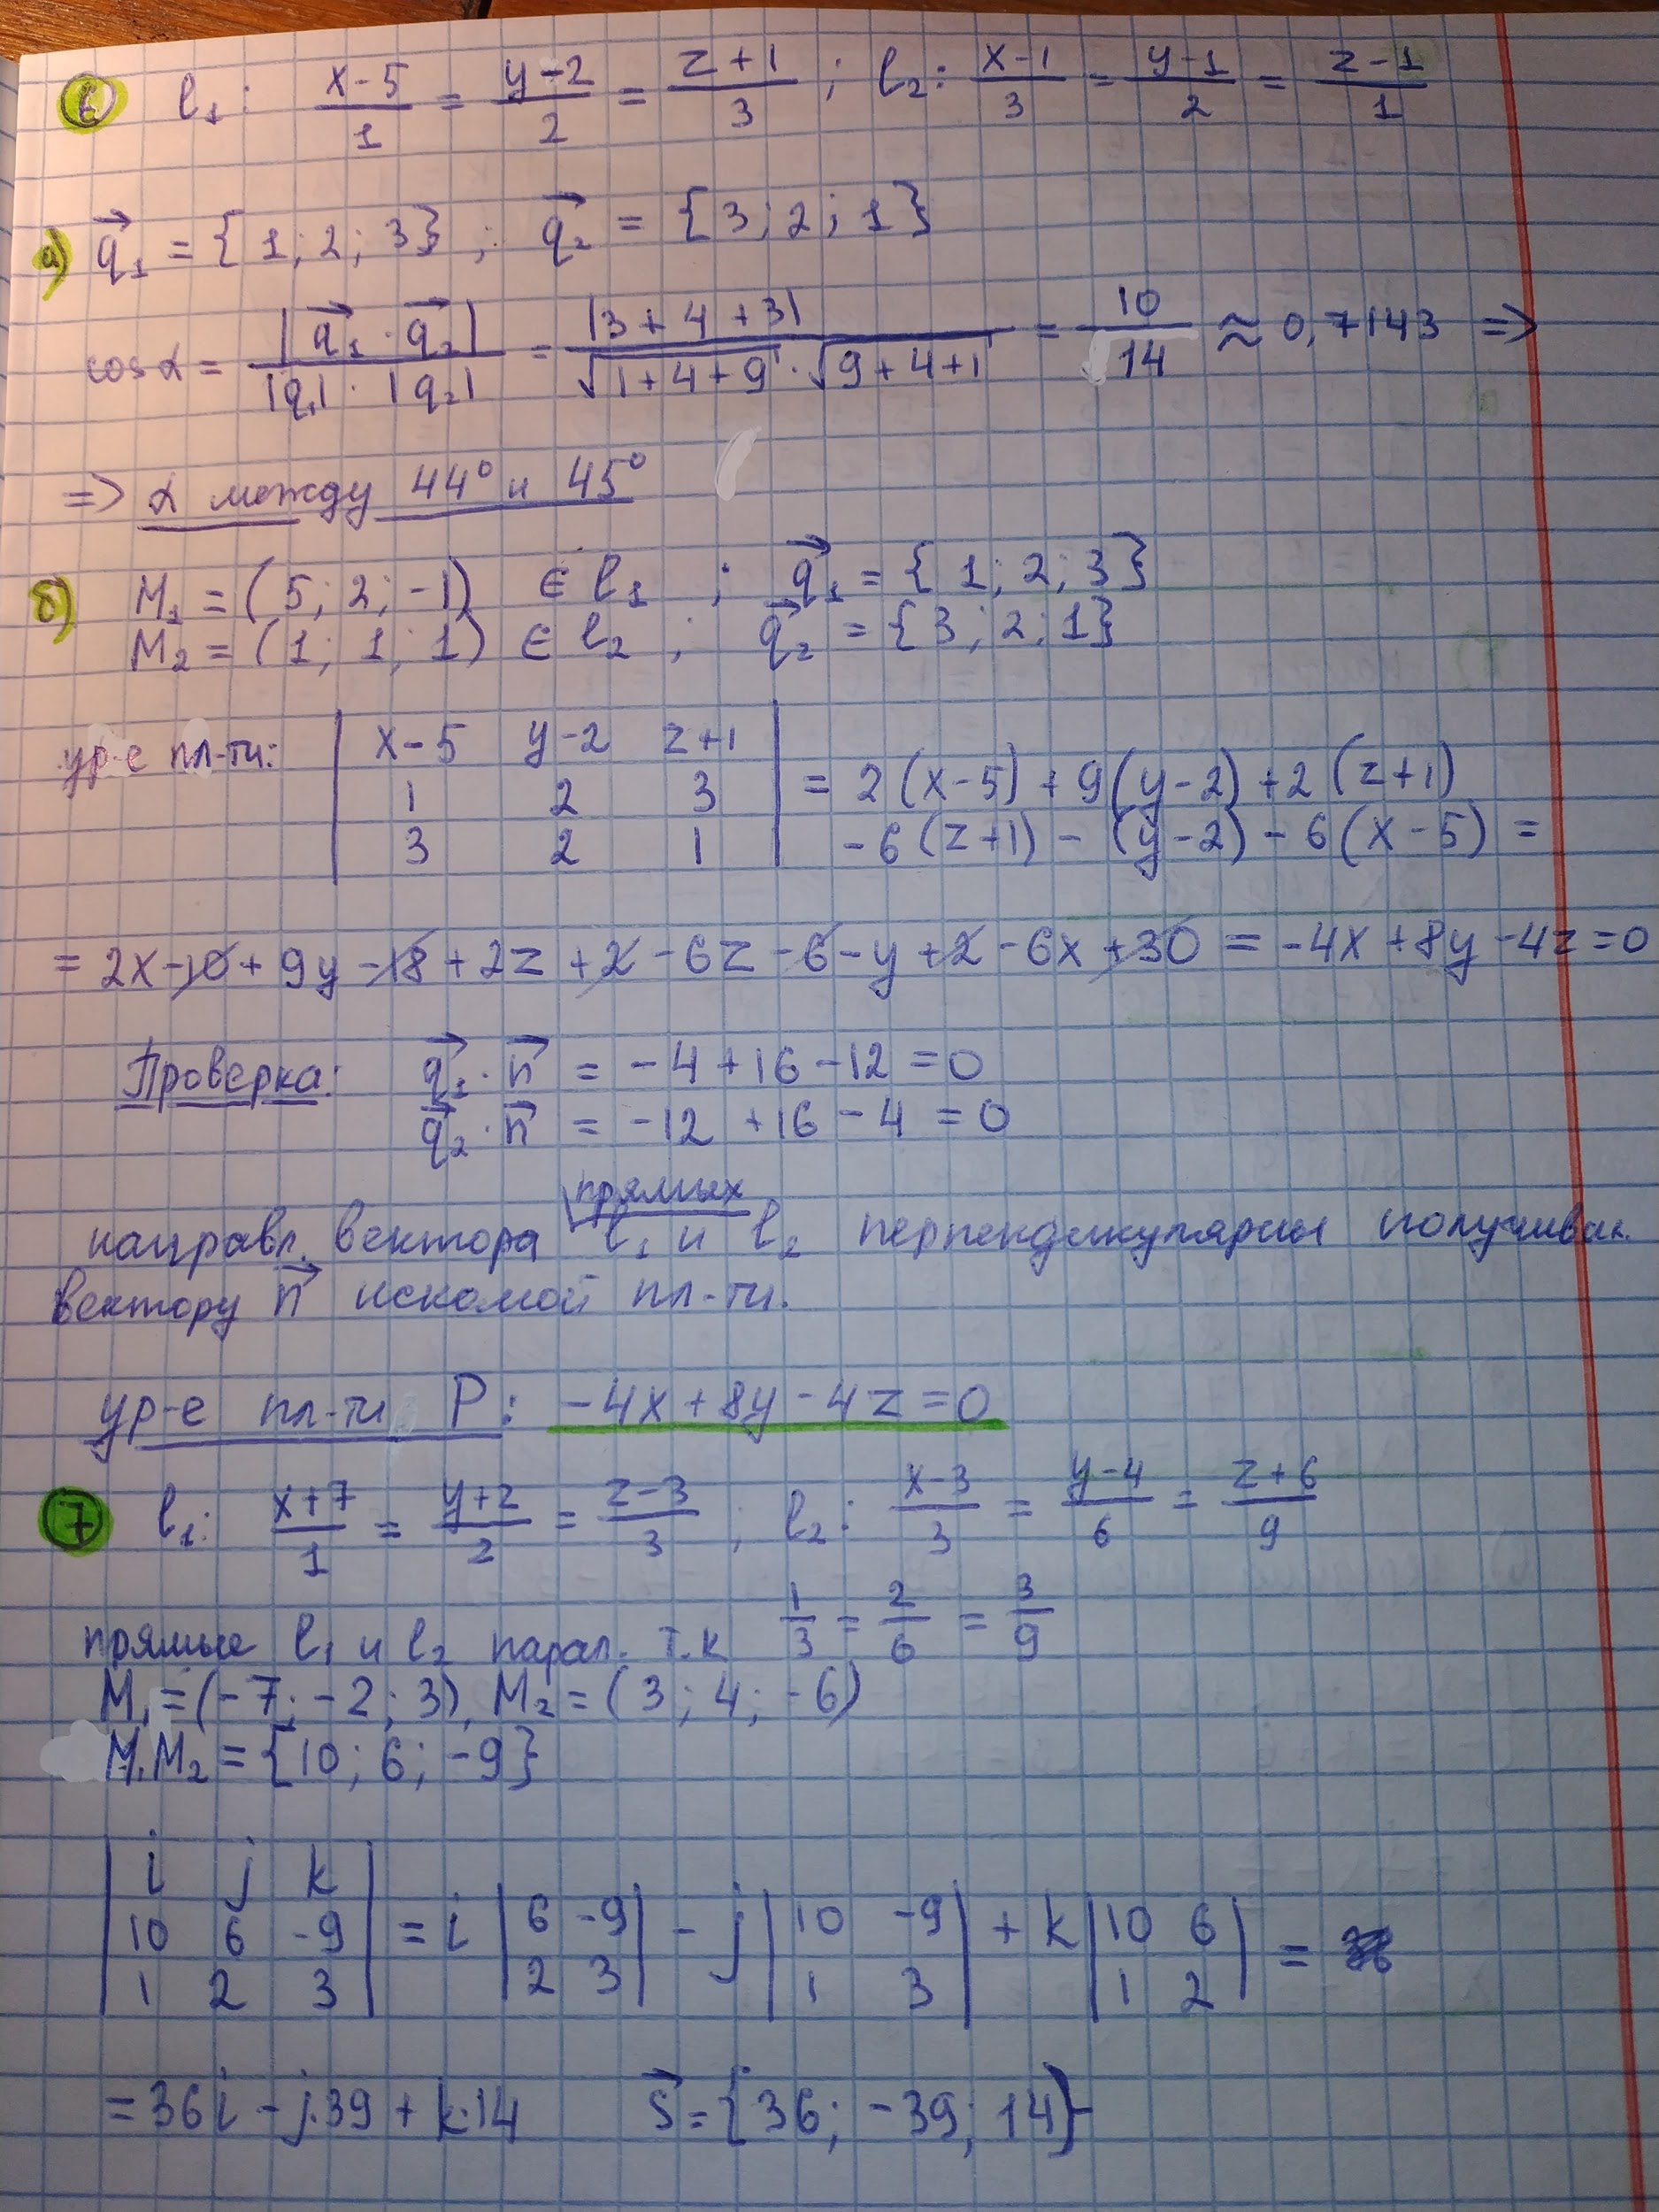 6 l₁: (x-5)/1 = (y-2)/2 = (z+1)/3 ; l₂: (x-1)/3 = (y-1)/2 = (z-1)/1
а) q₁ = {1; 2; 3} ; q₂ = {3; 2; 1}
cos α = |q₁ · q₂| / |q₁| · |q₂| = |3+4+3| / √(1+4+9) · √(9+4+1) = 10/14 ≈ 0,7143 =>
=> α между 44° и 45°
б) M₁ = (5; 2; -1) ∈ l₁ ; q₁ = {1; 2; 3}
M₂ = (1; 1; 1) ∈ l₂ ; q₂ = {3; 2; 1}
ур-е пл-ти: | x-5 y-2 z+1 |
| 1 2 3 | = 2(x-5) + 9(y-2) + 2(z+1)
| 3 2 1 | -6(z+1) - (y-2) - 6(x-5) =
= 2x-10+9y-18+2z+2-6z-6-y+2-6x+30 = -4x+8y-4z=0
Проверка: q₁ · n = -4+16-12=0
q₂ · n = -12+16-4=0
прямых
направл. вектора l₁ и l₂ перпендикулярны
вектору n искомой пл-ти.
ур-е пл-ти P: -4x+8y-4z=0
7 l₁: (x+7)/1 = (y+2)/2 = (z-3)/3 ; l₂: (x-3)/3 = (y-4)/6 = (z+6)/9
прямые l₁ и l₂ парал. т.к 1/3 = 2/6 = 3/9
M₁=(-7; -2; 3), M₂=(3; 4; -6)
M₁M₂ = {10; 6; -9}
| i j k |
| 10 6 -9 | = i | 6 -9 | - j | 10 -9 | + k | 10 6 | =
| 1 2 3 | | 2 3 | | 1 3 | | 1 2 |
= 36i - j·39 + k·14 S = {36; -39; 14}